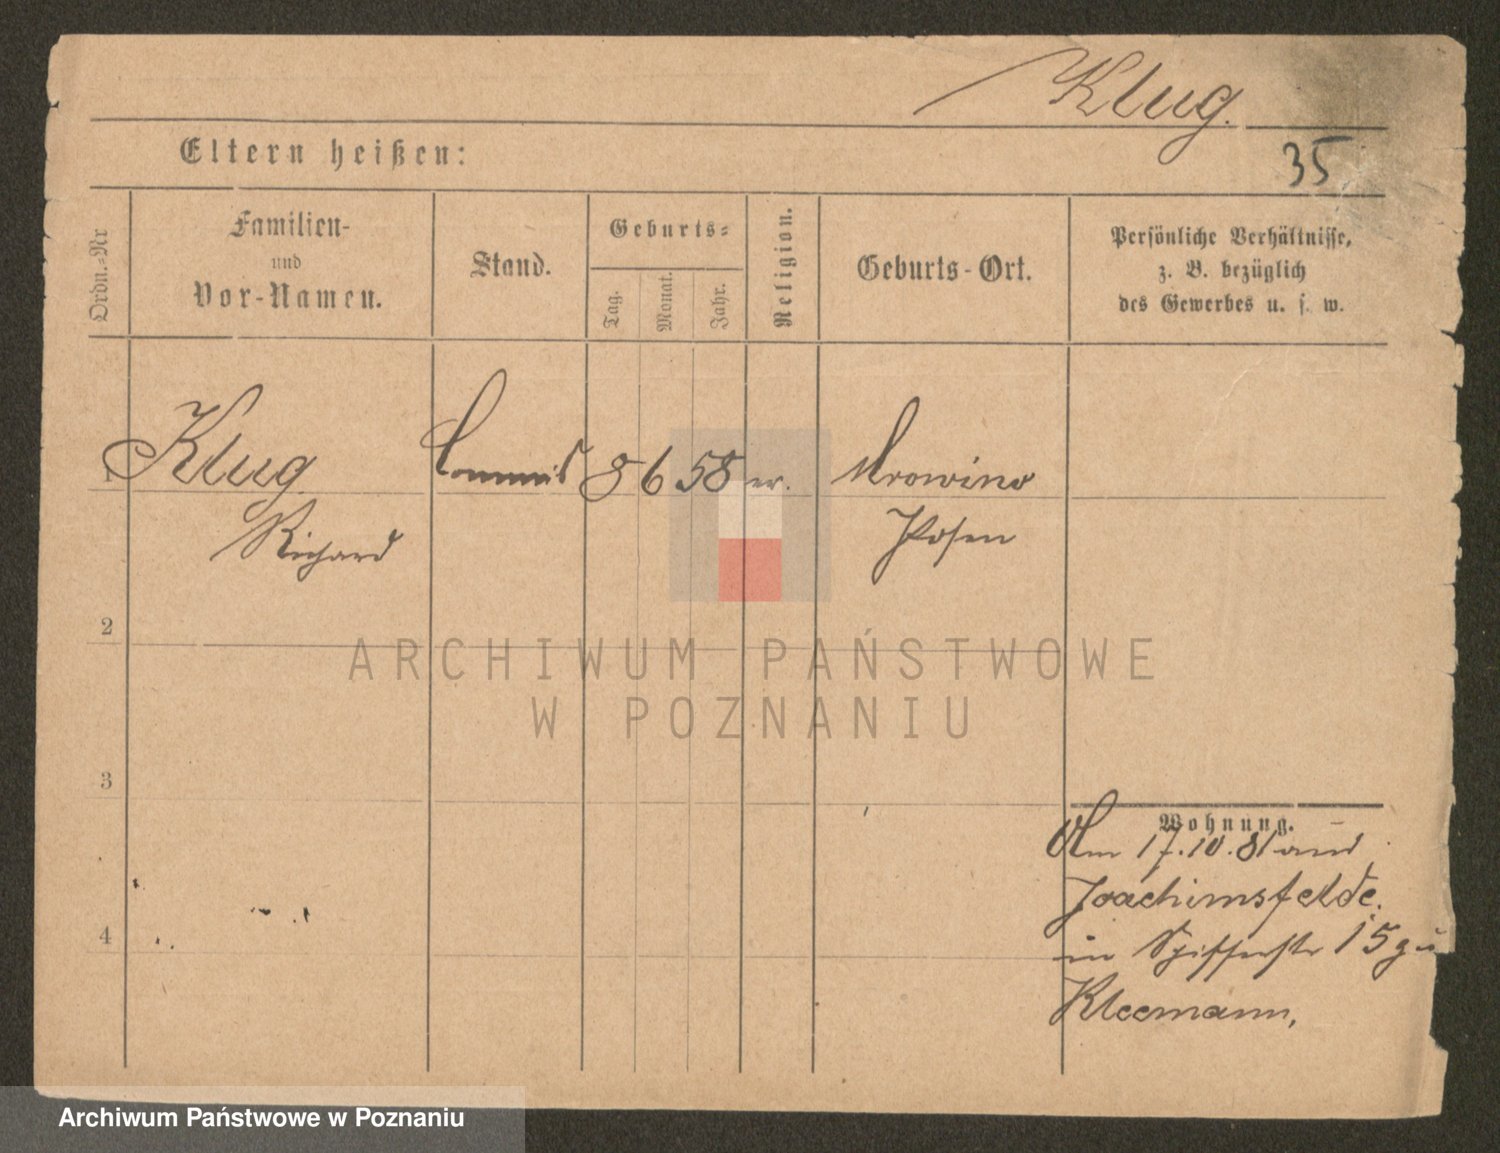 Klug.
Eltern heißen:
35
Ordn.-Nr
Familien-
und
Vor-Namen.
Stand.
Geburts-
Tag.
Monat.
Jahr.
Religion.
Geburts-Ort.
Persönliche Verhältnisse,
z. B. bezüglich
des Gewerbes u. s. w.
1 Klug Commis 8 6 58 ev. Mrowino
Richard Posen
2
ARCHIWUM PAŃSTWOWE
W POZNANIU
3
Wohnung.
Am 17.10.81 aus
Joachimsfelde
4
in 15 zu
Kleemann,
Archiwum Państwowe w Poznaniu